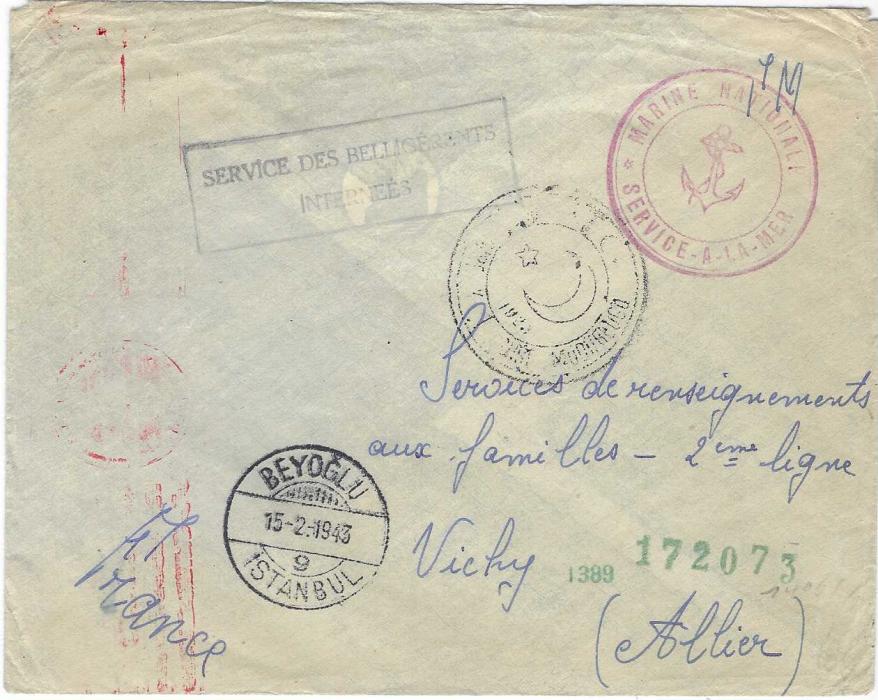 SERVICE DES BELLIGÉRENTS
INTERNEÉS
MARINE NATIONALE
* SERVICE-A-LA-MER
Services de renseignements
aux familles – 2ème ligne
Vichy
1389 172073
(Allier)
BEYOĞLU
15-2-1943
9
İSTANBUL
France